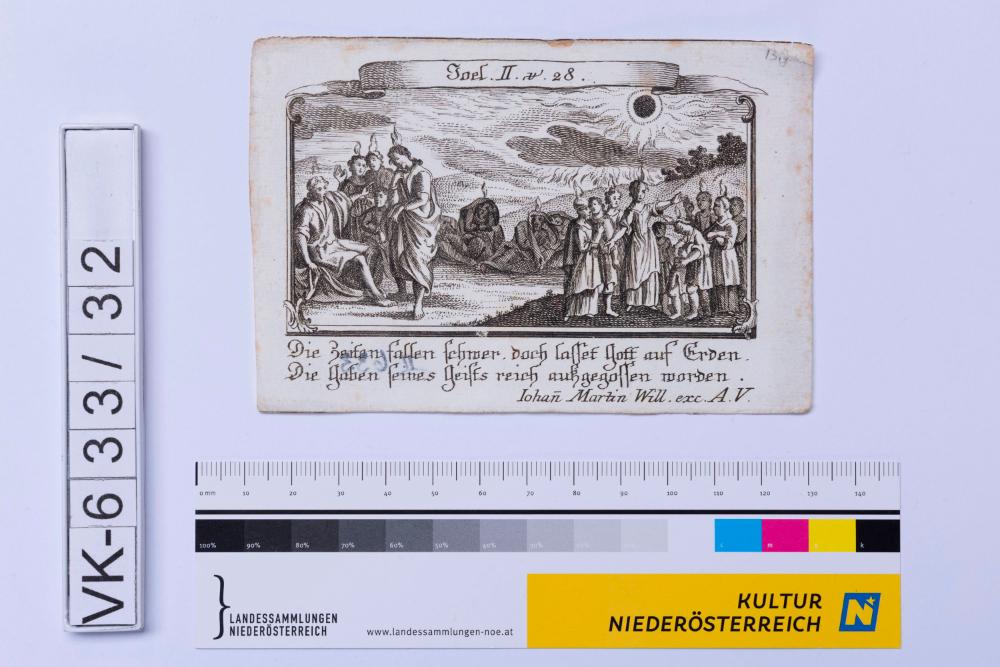 Joel. II. v. 28.
Die Zeiten fallen schwer. doch lasset Gott auf Erden.
Die Gaben seines Geists reich außgegossen worden.
Iohañ Martin Will. exc. A. V.
VK-633/32
0 mm 10 20 30 40 50 60 70 80 90 100 110 120 130 140
100% 90% 80% 70% 60% 50% 40% 30% c m y k
LANDESSAMMLUNGEN
NIEDERÖSTERREICH
www.landessammlungen-noe.at
KULTUR
NIEDERÖSTERREICH
N